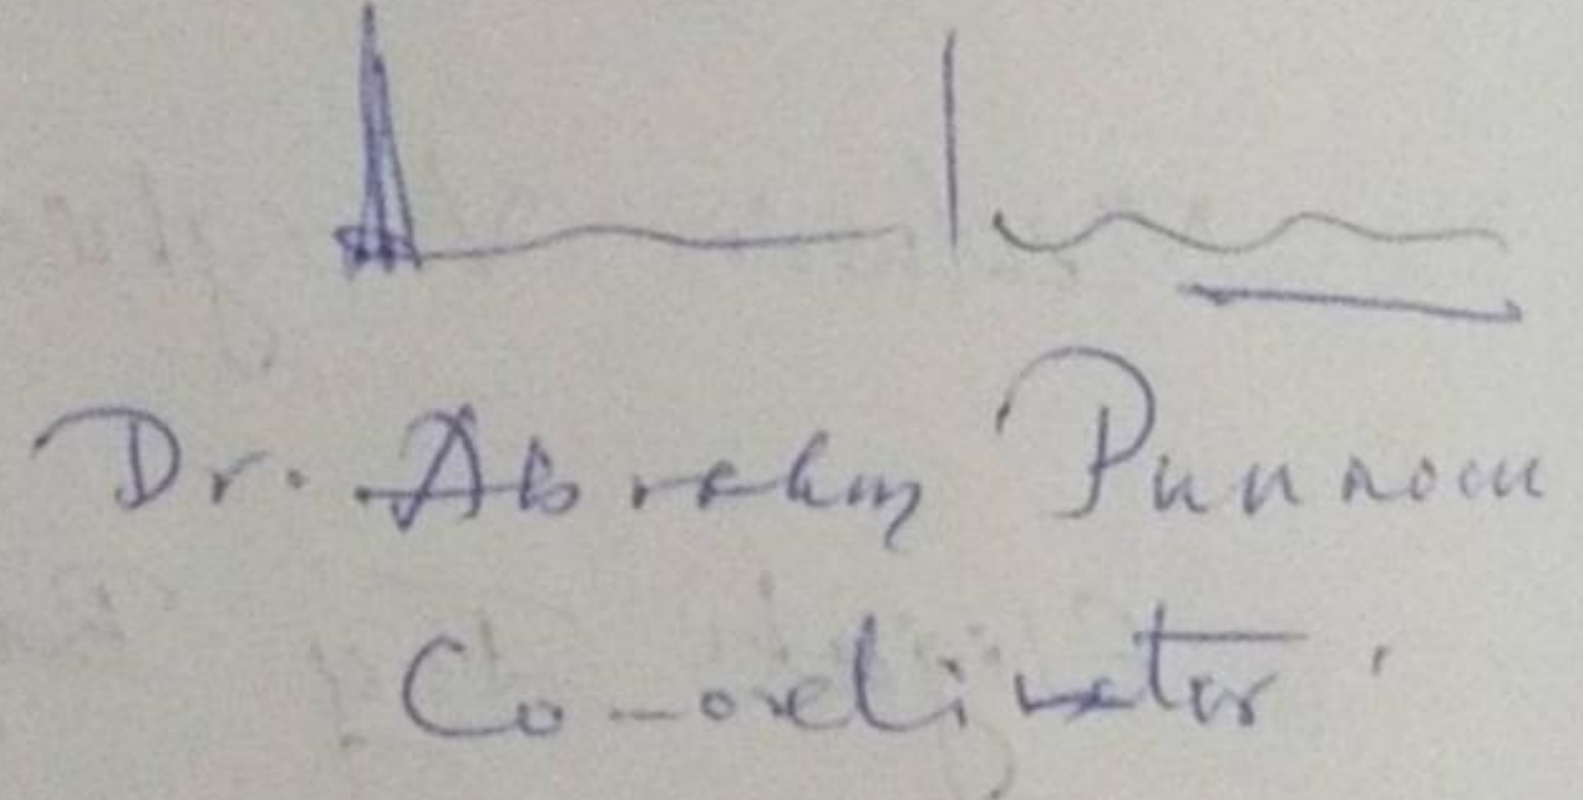 Dr. Abraham Punnoose
Co-ordinator